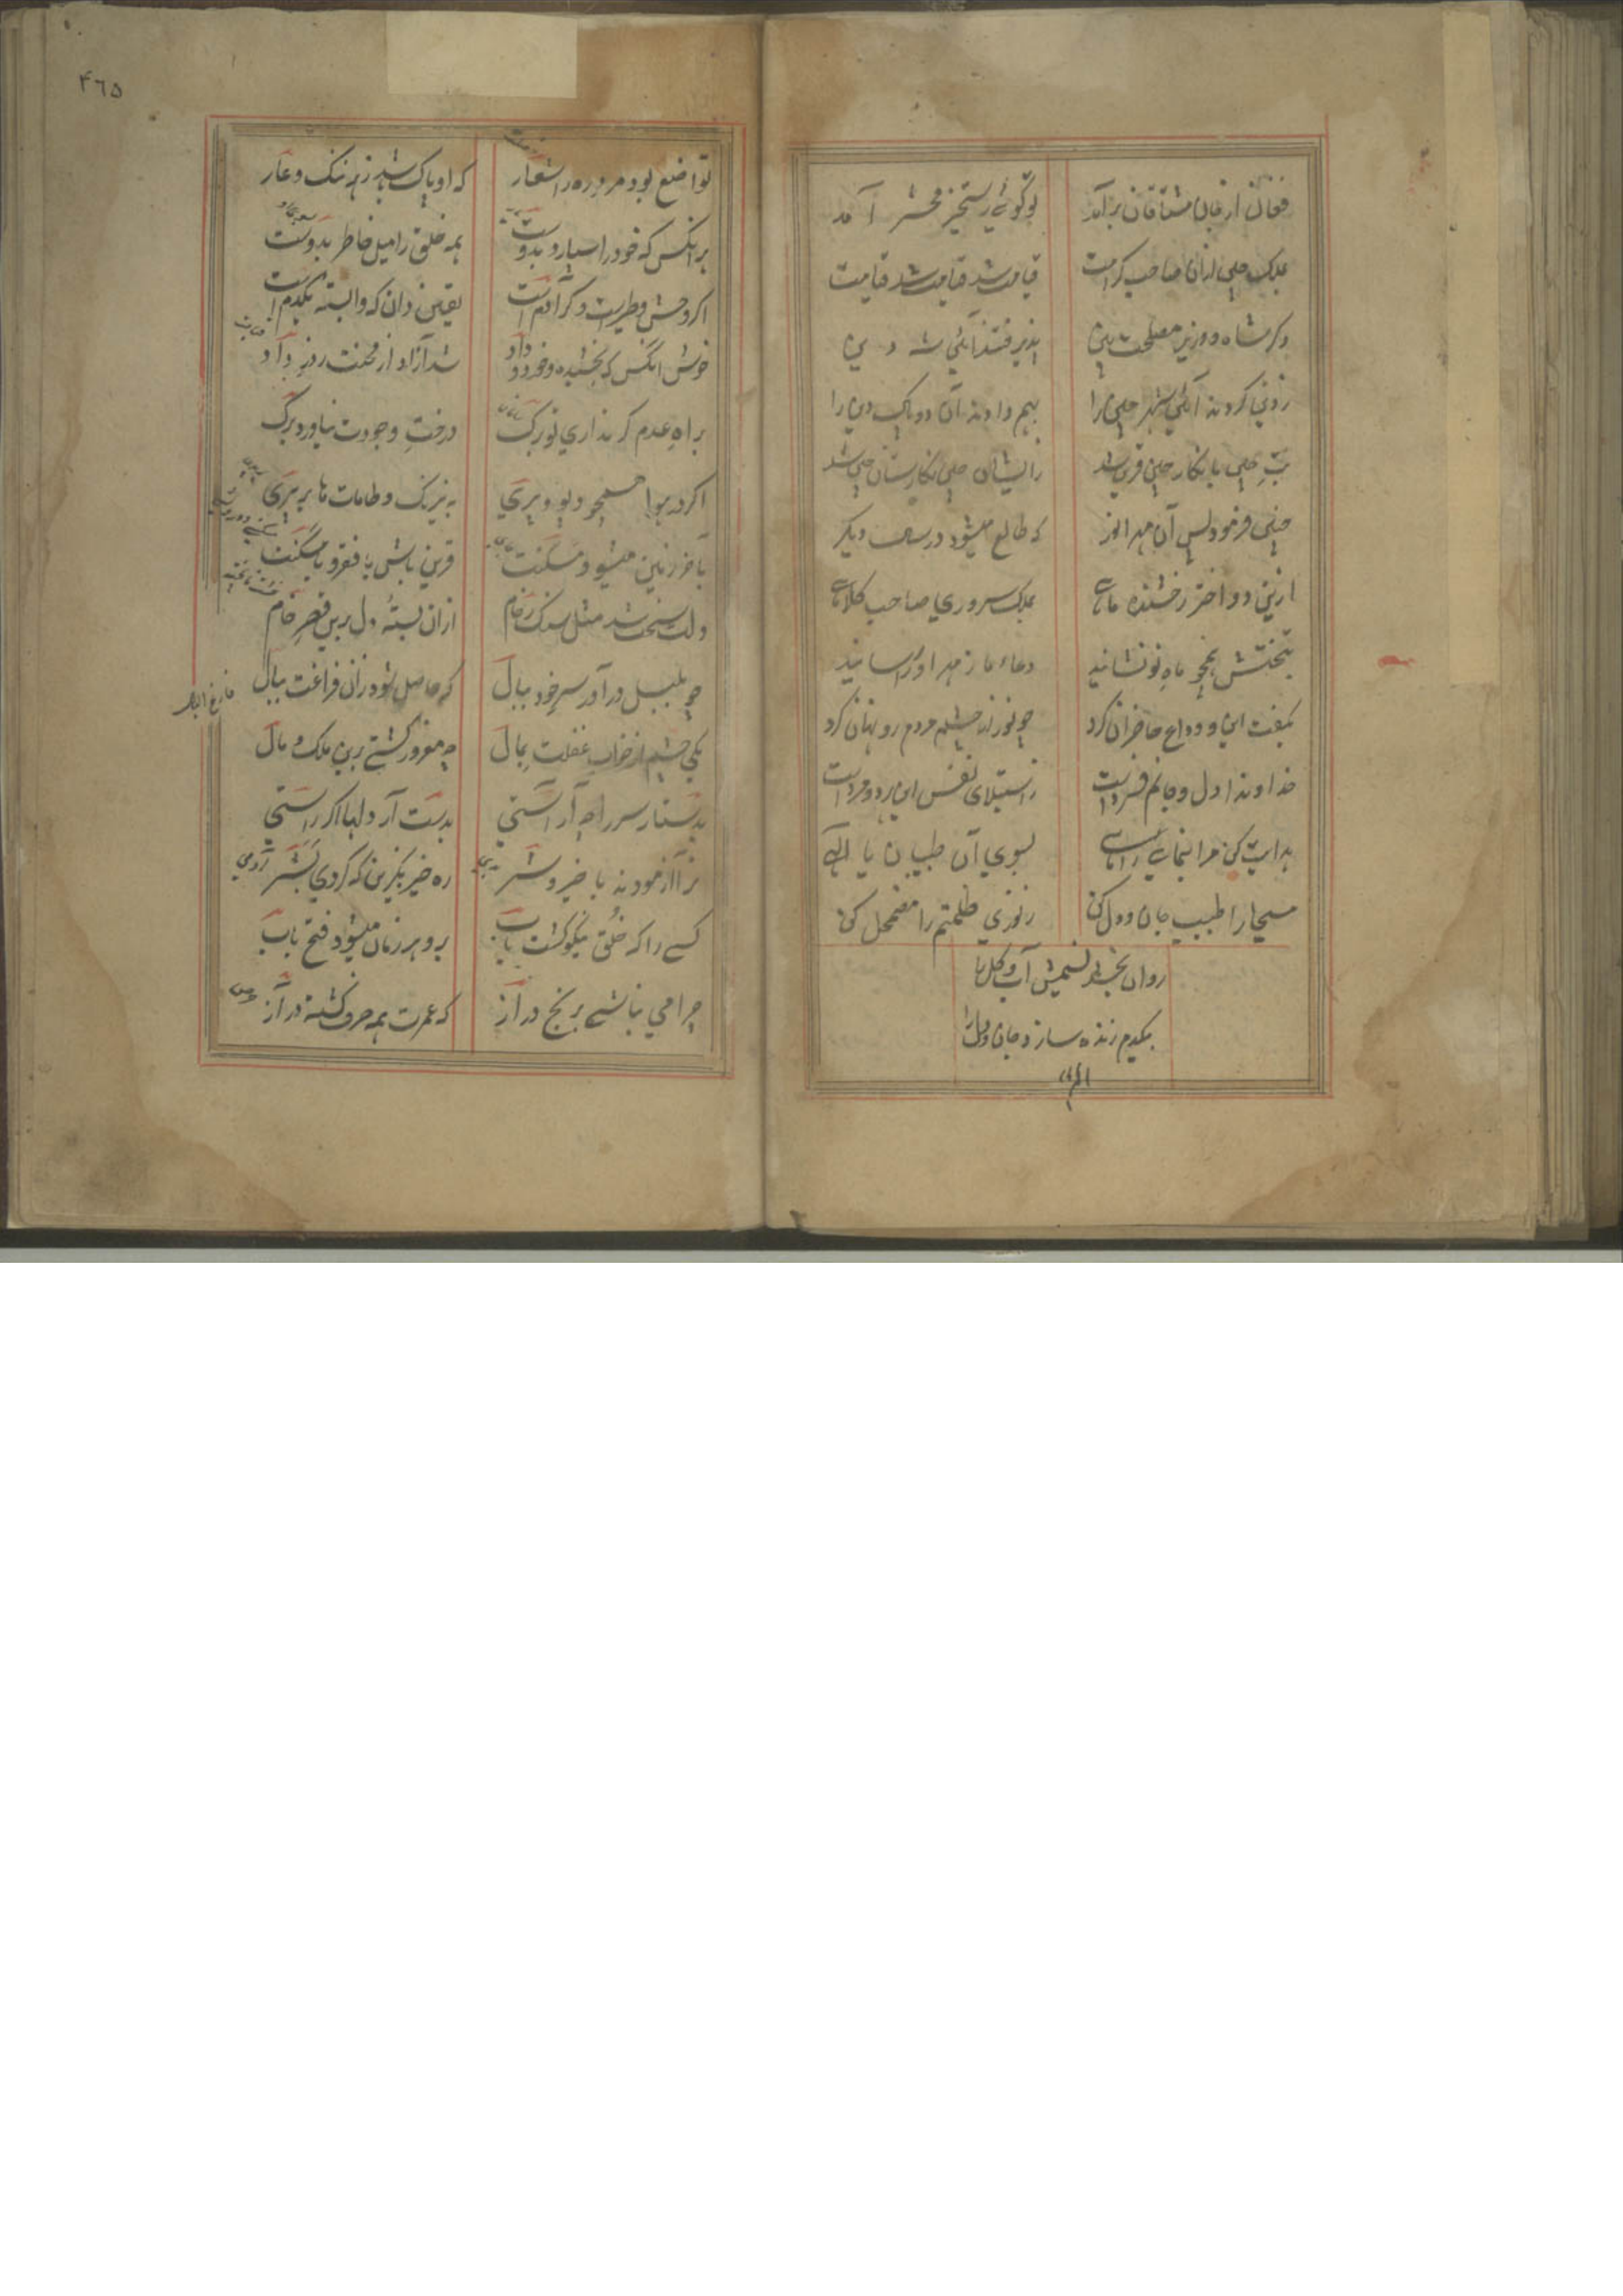 فغان از جان مشتاقان برآمد
تو گویی رستخیز محشر آمد
بملک چین ازان صاحب کرامت
قیامت شد قیامت شد قیامت
دکر شاه و وزیر مصلحت بین
پذیرفتند آیین
زنی کردند آیین شهر چین را
بهم دادند آن دو پاک دین را
بت چین با نکار چین قرین شد
زایشان چین نکارستان چین شد
چنین فرمود پس آن مه انور
که طالع میشود در ساعت دیکر
ازین دو اختر رخشنده ماهی
بملک سروری صاحب کلاهی
بتختش همچو ماه نو نشانید
دعاء ما ز مهر او را رسانید
بکفت این و وداع حاضران کرد
چو نور از چشم مردم رو نهان کرد
خداوندا دل و جانم فسردست
ز استیلای نفس این زده و مردست
هدایت کن مرا بنمای راهی
بسوی آن طبیبان یا الهی
مسیحا را طبیب جان و دل کن
ز نوری ظلمتم را مضمحل کن
روان بخش نسیمش آب و کل را
بیکدم زنده سازد جان و دل را
۴٦۵
تواضع بود مرد ره را شعار
که او پاک شد ز ننک و عار
هر انکس که خود را سپارد بدوست
همه خلق را میل خاطر بدوست
اکر وحش و طیرست و کر آدمست
یقین دان که وابسته یکدمست
خوش انکس که بخشیده و خورد و داد
شد آزاد از محنت روز داد
براه عدم کر نداری تو برک
درخت وجودت نیاورد برک
اکر در هوا همچو دیو و پری
به نیرنک و طامات ما بر پری
بآخر زمین میشود مسکنت
قرین باش با فقر و با مسکنت
دلت سخت شد مثل سنک رخام
ازان بسته دل برین قصر خام
چو بلبل درآور سر خود ببال
که حاصل شود زان فراغت ببال
فارغ البال
یکی چشم از خواب غفلت بمال
چه مغرور کشتی برین ملک و مال
بدستار سر را چه آراستی
بدست آر دلها اکر راستی
ترا آزمودند با خیر و شر
ره خیر بکزین که کردی بشر
آدمی
کسی را که خلق نیکو کشت باب
برو هر زمان میشود فتح باب
چرا می نباشی برنج دراز
که عمرت همه صرف کشته در آز
حرص